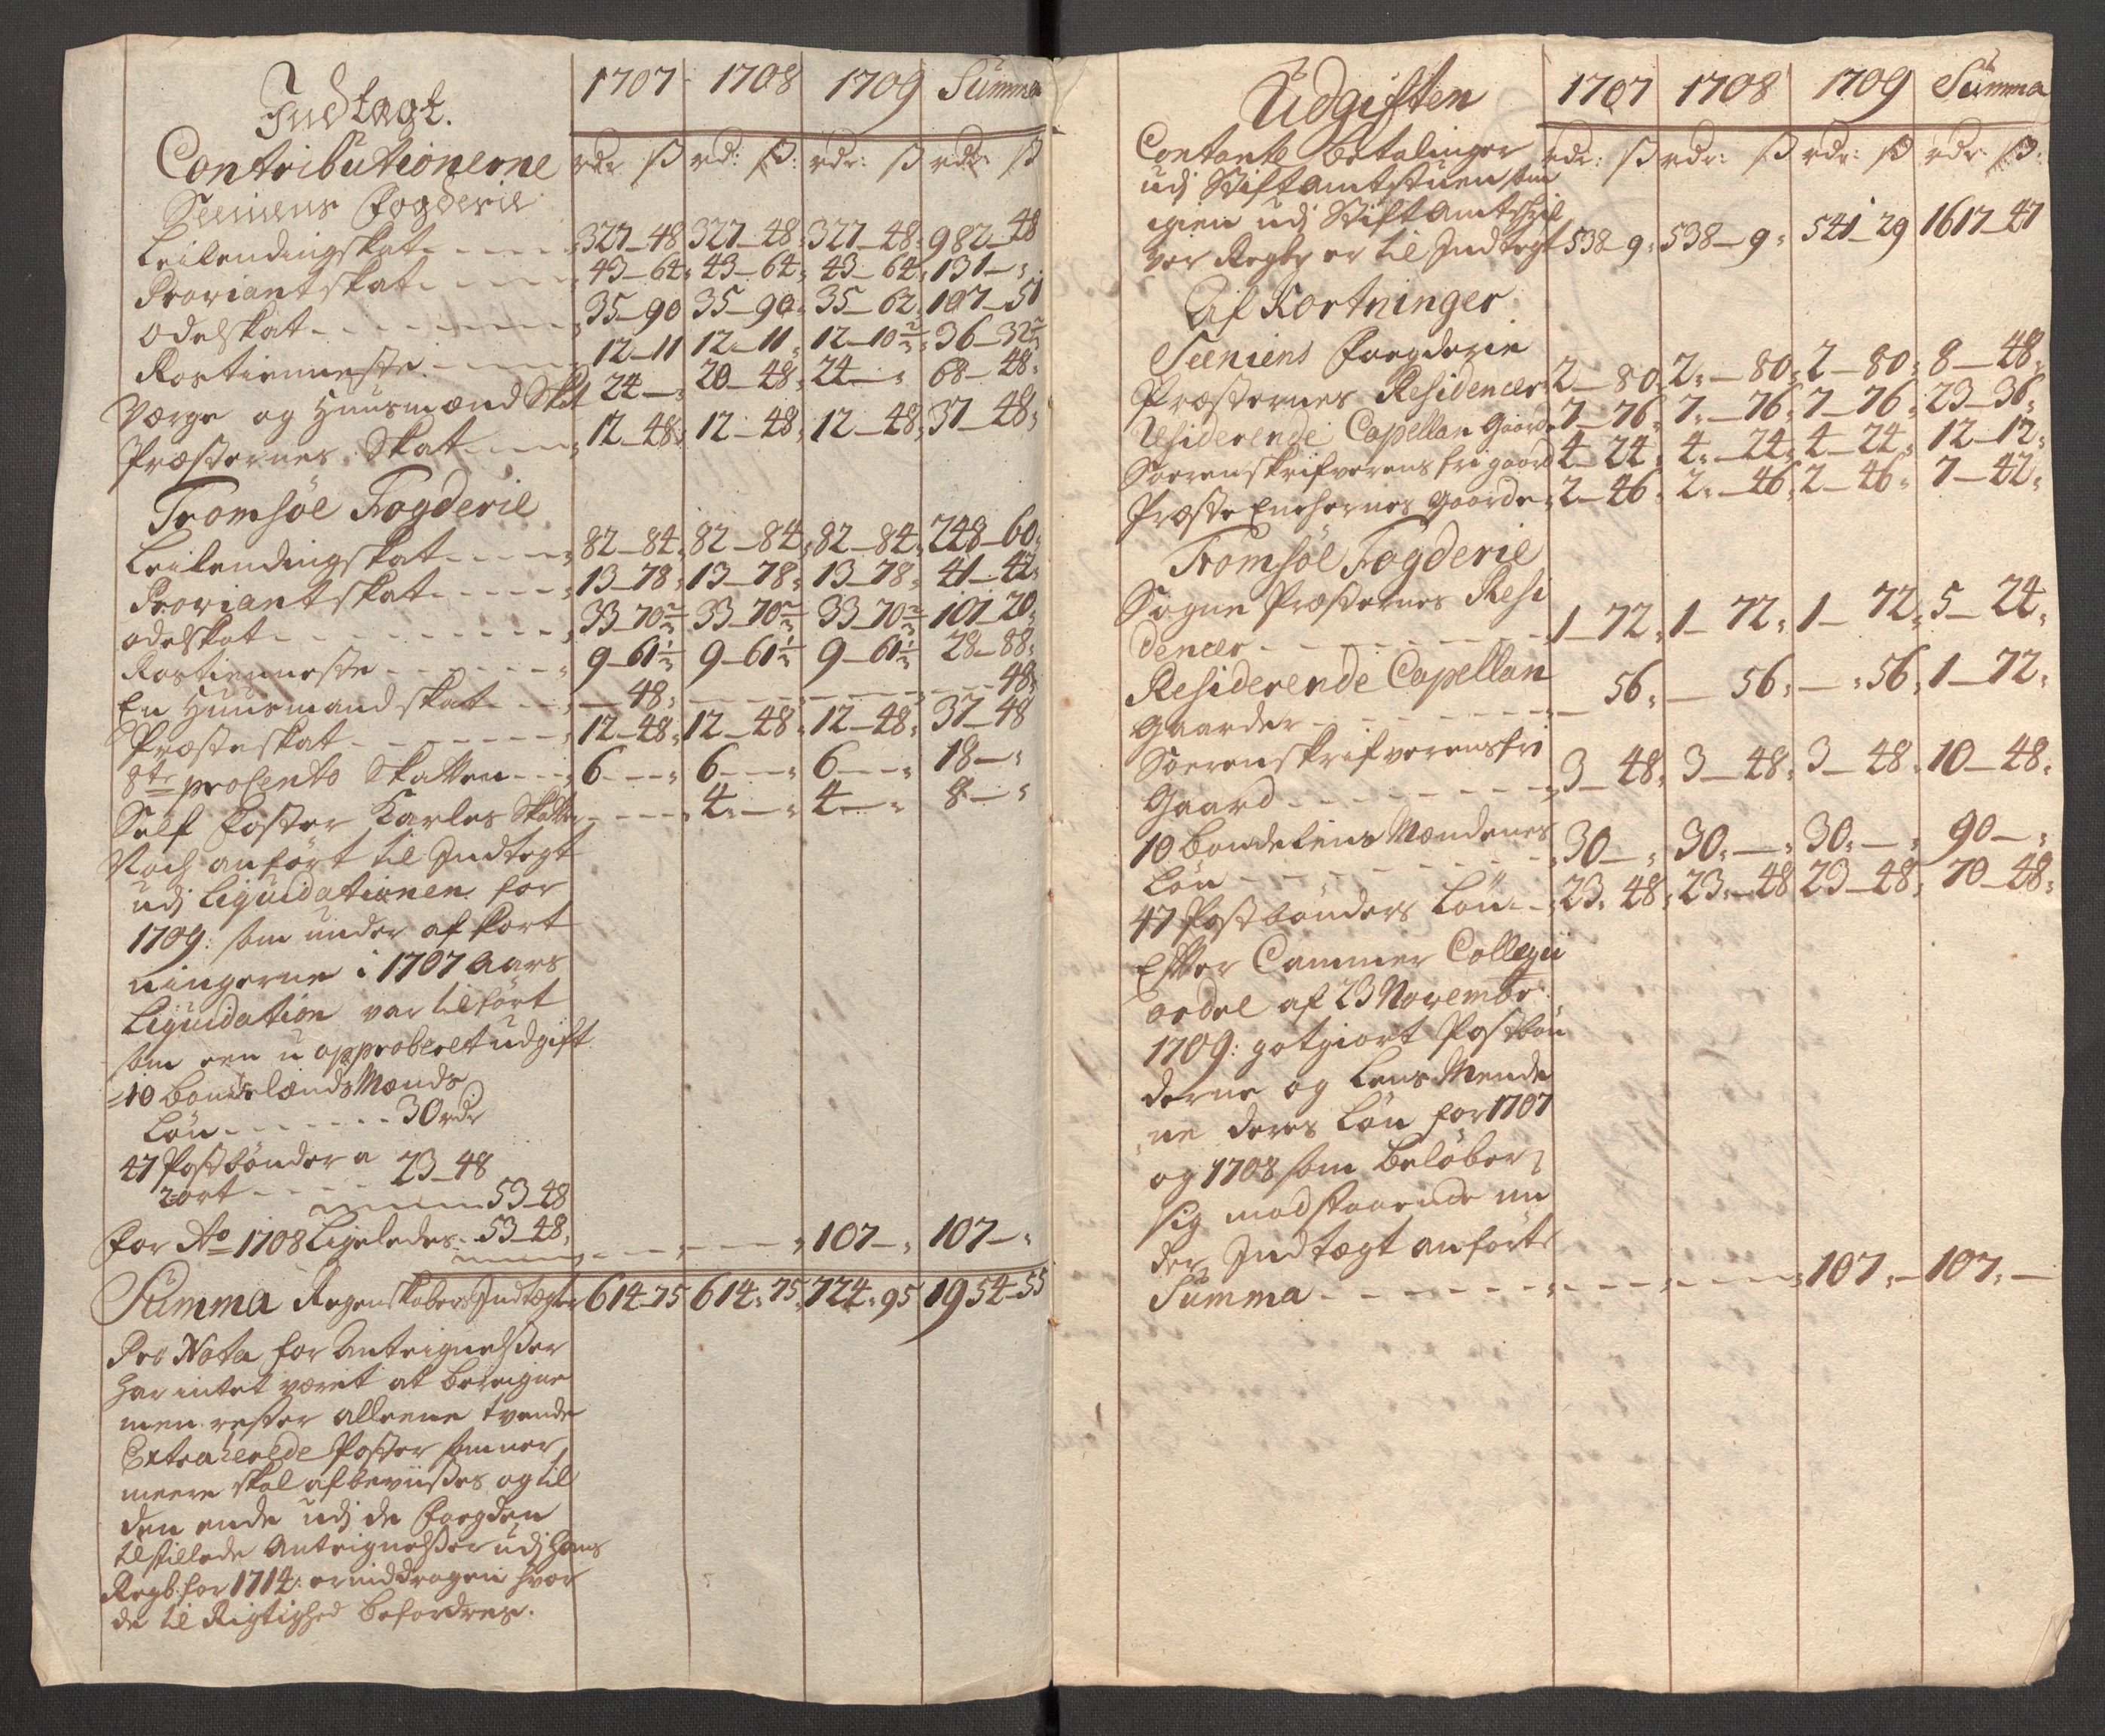 Indtægt. 1707 1708 1709 Summa
Contributionerne rdr ß rd: ß: rdr: ß rdr: ß
Seeniens Fogderie
Leilendingskat - - - - 327_48 327_48 327_48 982_48
Proviantskat - - - - 43_64 43_64 43_64 131_"
Odelskat - - - - - - 35_90 35_90 35_62 107_51
Rostienneste - - - 12_11 12_11 12_10 2/3 36_32 2/3
Værge og Huusmænd Skat 24_" 20_48 24_" 68_48
Præsternes Skat - - - 12_48 12_48 12_48 37_48
Tromsøe Fogderie
Leilendingskat - - - - 82_84 82_84 82_84 248_60
Proviantskat - - - - 13_78 13_78 13_78 41_42
odelskat - - - - - - 33_70 2/3 33_70 2/3 33_70 2/3 101_20
Rostienneste - - - - 9_61 1/3 9_61 1/3 9_61 1/3 28_88
En Huusmandskat - - - _48 - - - - - - 48
Præsteskat - - - - - 12_48 12_48 12_48 37_48
8te procento Skatten - - 6_" 6_" 6_" 18_"
Self foster Karles Skatter - - - 4_" 4_" 8_"
Noch anført til Indtegt
udj Liquidationen for
1709: som under afkort
ningerne i 1707 Aars
Liquidation var tilført
som een u approberet udgift
10 bonde lænds Mænds
Løn - - - - - - 30 rdr
47 Postbønder a
2 ort - - - - 23_48
53_48
for Ao 1708 Ligeledes 53_48 - - - - 107_" 107_"
Summa Regenskabers Indtægter 614_75 614_75 724_95 1954_55
Pro Nota for Anteignelser
har intet været at bereigne
men rester alleene tvende
Extraherede Poster som er
meere skal afbeviises og til
den ende udj de Fogden
tilstillede Anteignelser udj hans
Regb: for 1714: er inddragen hvor
de til Rigtighed befordres.
Udgiften 1707 1708 1709 Summa
Contante betalinger rdr: ß rdr: ß rdr: ß rdr: ß:
udj Stiftamtstuen som
igien udj Stiftamtskri
ver Regbr er til Indtegt 538_9 538_9 541_29 1617_47
Af Kortninger
Seeniens Foegderie
Præsternes Residencer 2_80 2_80 2_80 8_48
Residerende Capellan Gaarde 7_76 7_76 7_76 23_36
Sorenskrifverens fri gaard 4_24 4_24 4_24 12_12
Præste Enchernes Gaarde 2_46 2_46 2_46 7_42
Tromsøe Fogderie
Sogne Præsternes Resi
dencer - - - - - - 1_72 1_72 1_72 5_24
Residerende Capellan
Gaarder - - - - - _56 _56 _56 1_72
Sorenskrifverens fri
Gaard - - - - - - 3_48 3_48 3_48 10_48
10 bonde Lens Mændenes
Løn - - - - - - 30_" 30_" 30_" 90_"
47 Postbønders Løn - - 23_48 23_48 23_48 70_48
Efter Cammer Collegii
ordre af 23 November
1709: gotgiort Postbøn
derne og Lens Mende
ne deres Løn for 1707
og 1708 som beløber
sig modstaaende un
der Indtægt anført
Summa - - - - - - - - 107_ 107_